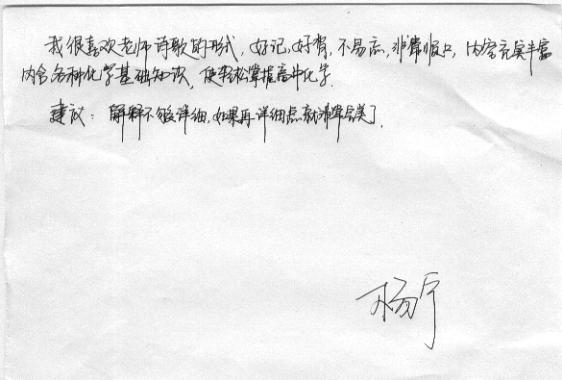 我很喜欢老师诗歌的形式，好记，好背，不易忘，非常顺口，内容充实丰富
内含各种化学基础知识，使轻松掌握高中化学.
建议：解释不够详细，如果再详细点就非常完美了.
杨宁